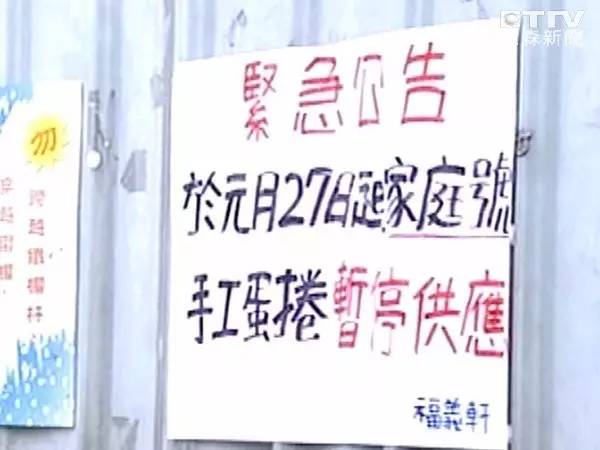 ETTV
東森新聞
緊急公告
於元月27日起家庭號
手工蛋捲暫停供應
福義軒
勿
跨越鐵欄杆